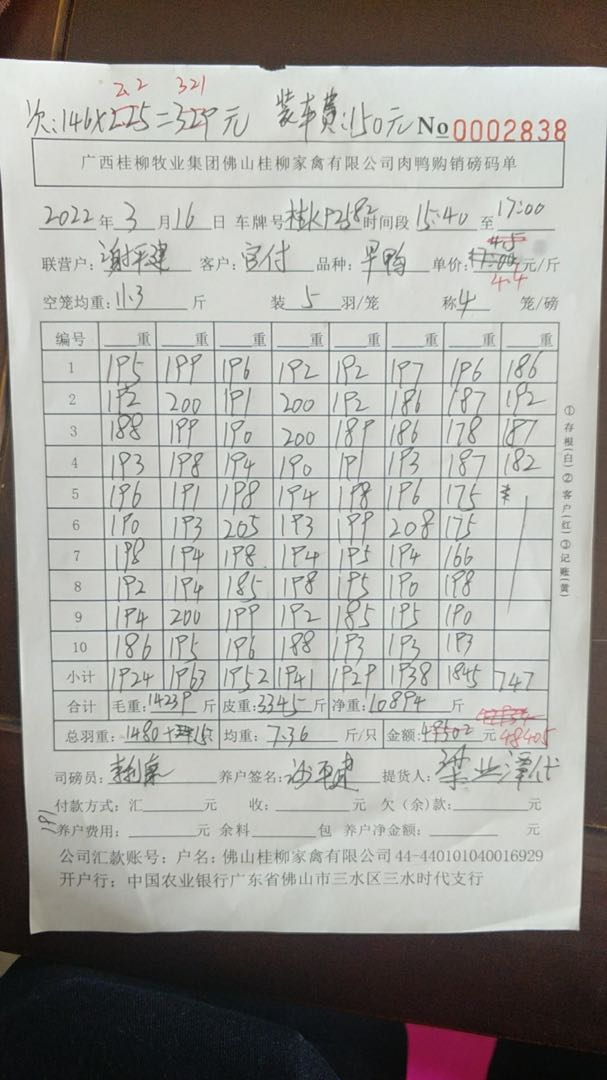 2.2 321
次:146×2.25=329元 装车費:150元 No 0002838
广西桂柳牧业集团佛山桂柳家禽有限公司肉鸭购销磅码单
2022年3月16日 车牌号 桂KP2582 时间段 15:40 至 17:00
4.5
联营户: 客户:宫付 品种:早鸭 单价: 元/斤
4.4
空笼均重:11.3斤 装5羽/笼 称4笼/磅
编号 重 重 重 重 重 重 重 重
1 195 199 196 192 192 197 196 186
2 192 200 191 200 192 186 187 192
3 188 199 190 200 189 186 178 187
4 193 198 194 190 191 193 187 182
5 196 191 198 194 198 196 175
6 190 193 205 193 199 208 175
7 198 194 198 194 195 194 166
8 192 194 185 198 195 190 198
9 194 200 199 192 185 195 190
10 186 195 196 188 193 193 193
小计 1924 1963 1952 1941 1929 1938 1845 747
合计 毛重:14239斤 皮重:3345斤 净重:10894斤
总羽重:1480+ 均重:7.36斤/只 金额:元 48405
司磅员: 养户签名: 提货人:
付款方式:汇 元 收: 元 欠(余)款: 元
养户费用: 元 余料 包 养户净金额: 元
公司汇款账号:户名:佛山桂柳家禽有限公司44-440101040016929
开户行:中国农业银行广东省佛山市三水区三水时代支行
①存根(白)②客户(红)③记账(黄)